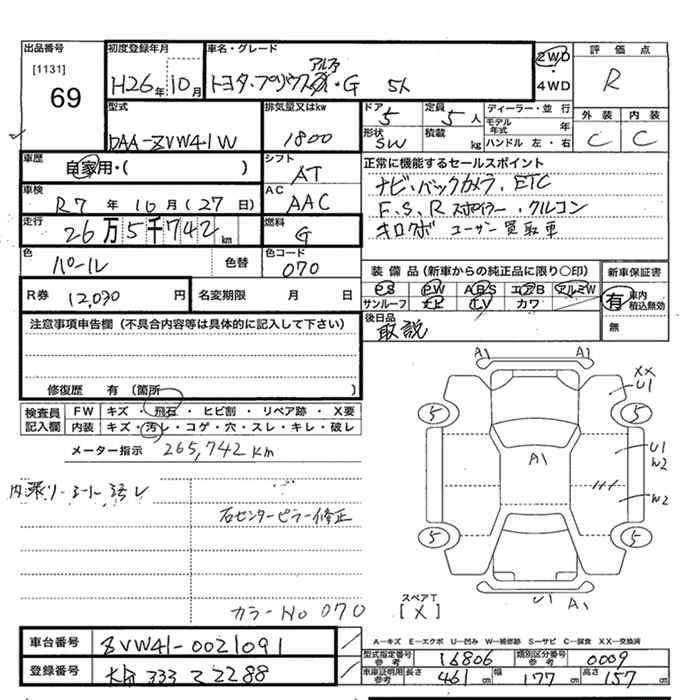 出品番号 初度登録年月 車名・グレード 評価点
[1131]
69
H26年10月 トヨタ・プリウスα・G 5人
アルファ
2WD・4WD
R
型式 排気量又はkw ドア 定員 ディーラー・並行 外装 内装
DAA-ZVW41W 1800 5 5人 モデル年式 年 C C
形状 SW 積載 kg ハンドル 左・右
車歴 自家用・( ) シフト AT
正常に機能するセールスポイント
車検 R7年10月(27日) AC AAC
ナビ・バックカメラ、ETC
走行 26万5千742km 燃料 G
F,S,R スポイラー・クルコン
キロクボ ユーザー買取車
色 パール 色替 色コード 070
装備品(新車からの純正品に限り○印) 新車保証書
PS PW ABS エアB アルミW
サンルーフ ナビ TV カワ
有 車内積込無効
無
R券 12,030円 名変期限 月 日
後日品
取説
注意事項申告欄(不具合内容等は具体的に記入して下さい)
修復歴 有(箇所
検査員記入欄 FW キズ・飛石・ヒビ割・リペア跡・X要
内装 キズ・汚レ・コゲ・穴・スレ・キレ・破レ
メーター指示 265,742km
内張り・シート汚レ
右センターピラー修正
カラーNo 070
A1 A1
XX
U1
5 5
A1
U1
W2
W2
5 5
U1 A1
スペアT
[X]
車台番号 ZVW41-0021091
A―キズ E―エクボ U―凹み W―補修跡 S―サビ C―腐食 XX―交換済
型式指定番号 参考 16806 類別区分番号 参考 0009
登録番号
車庫証明用 参考 長さ 461cm 幅 177cm 高さ 157cm